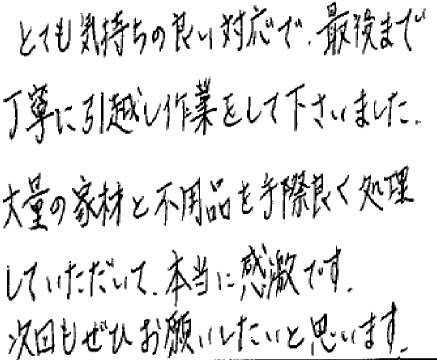 とても気持ちの良い対応で、最後まで
丁寧に引越し作業をして下さいました。
大量の家材と不用品を手際良く処理
していただいて、本当に感激です。
次回もぜひお願いしたいと思います。